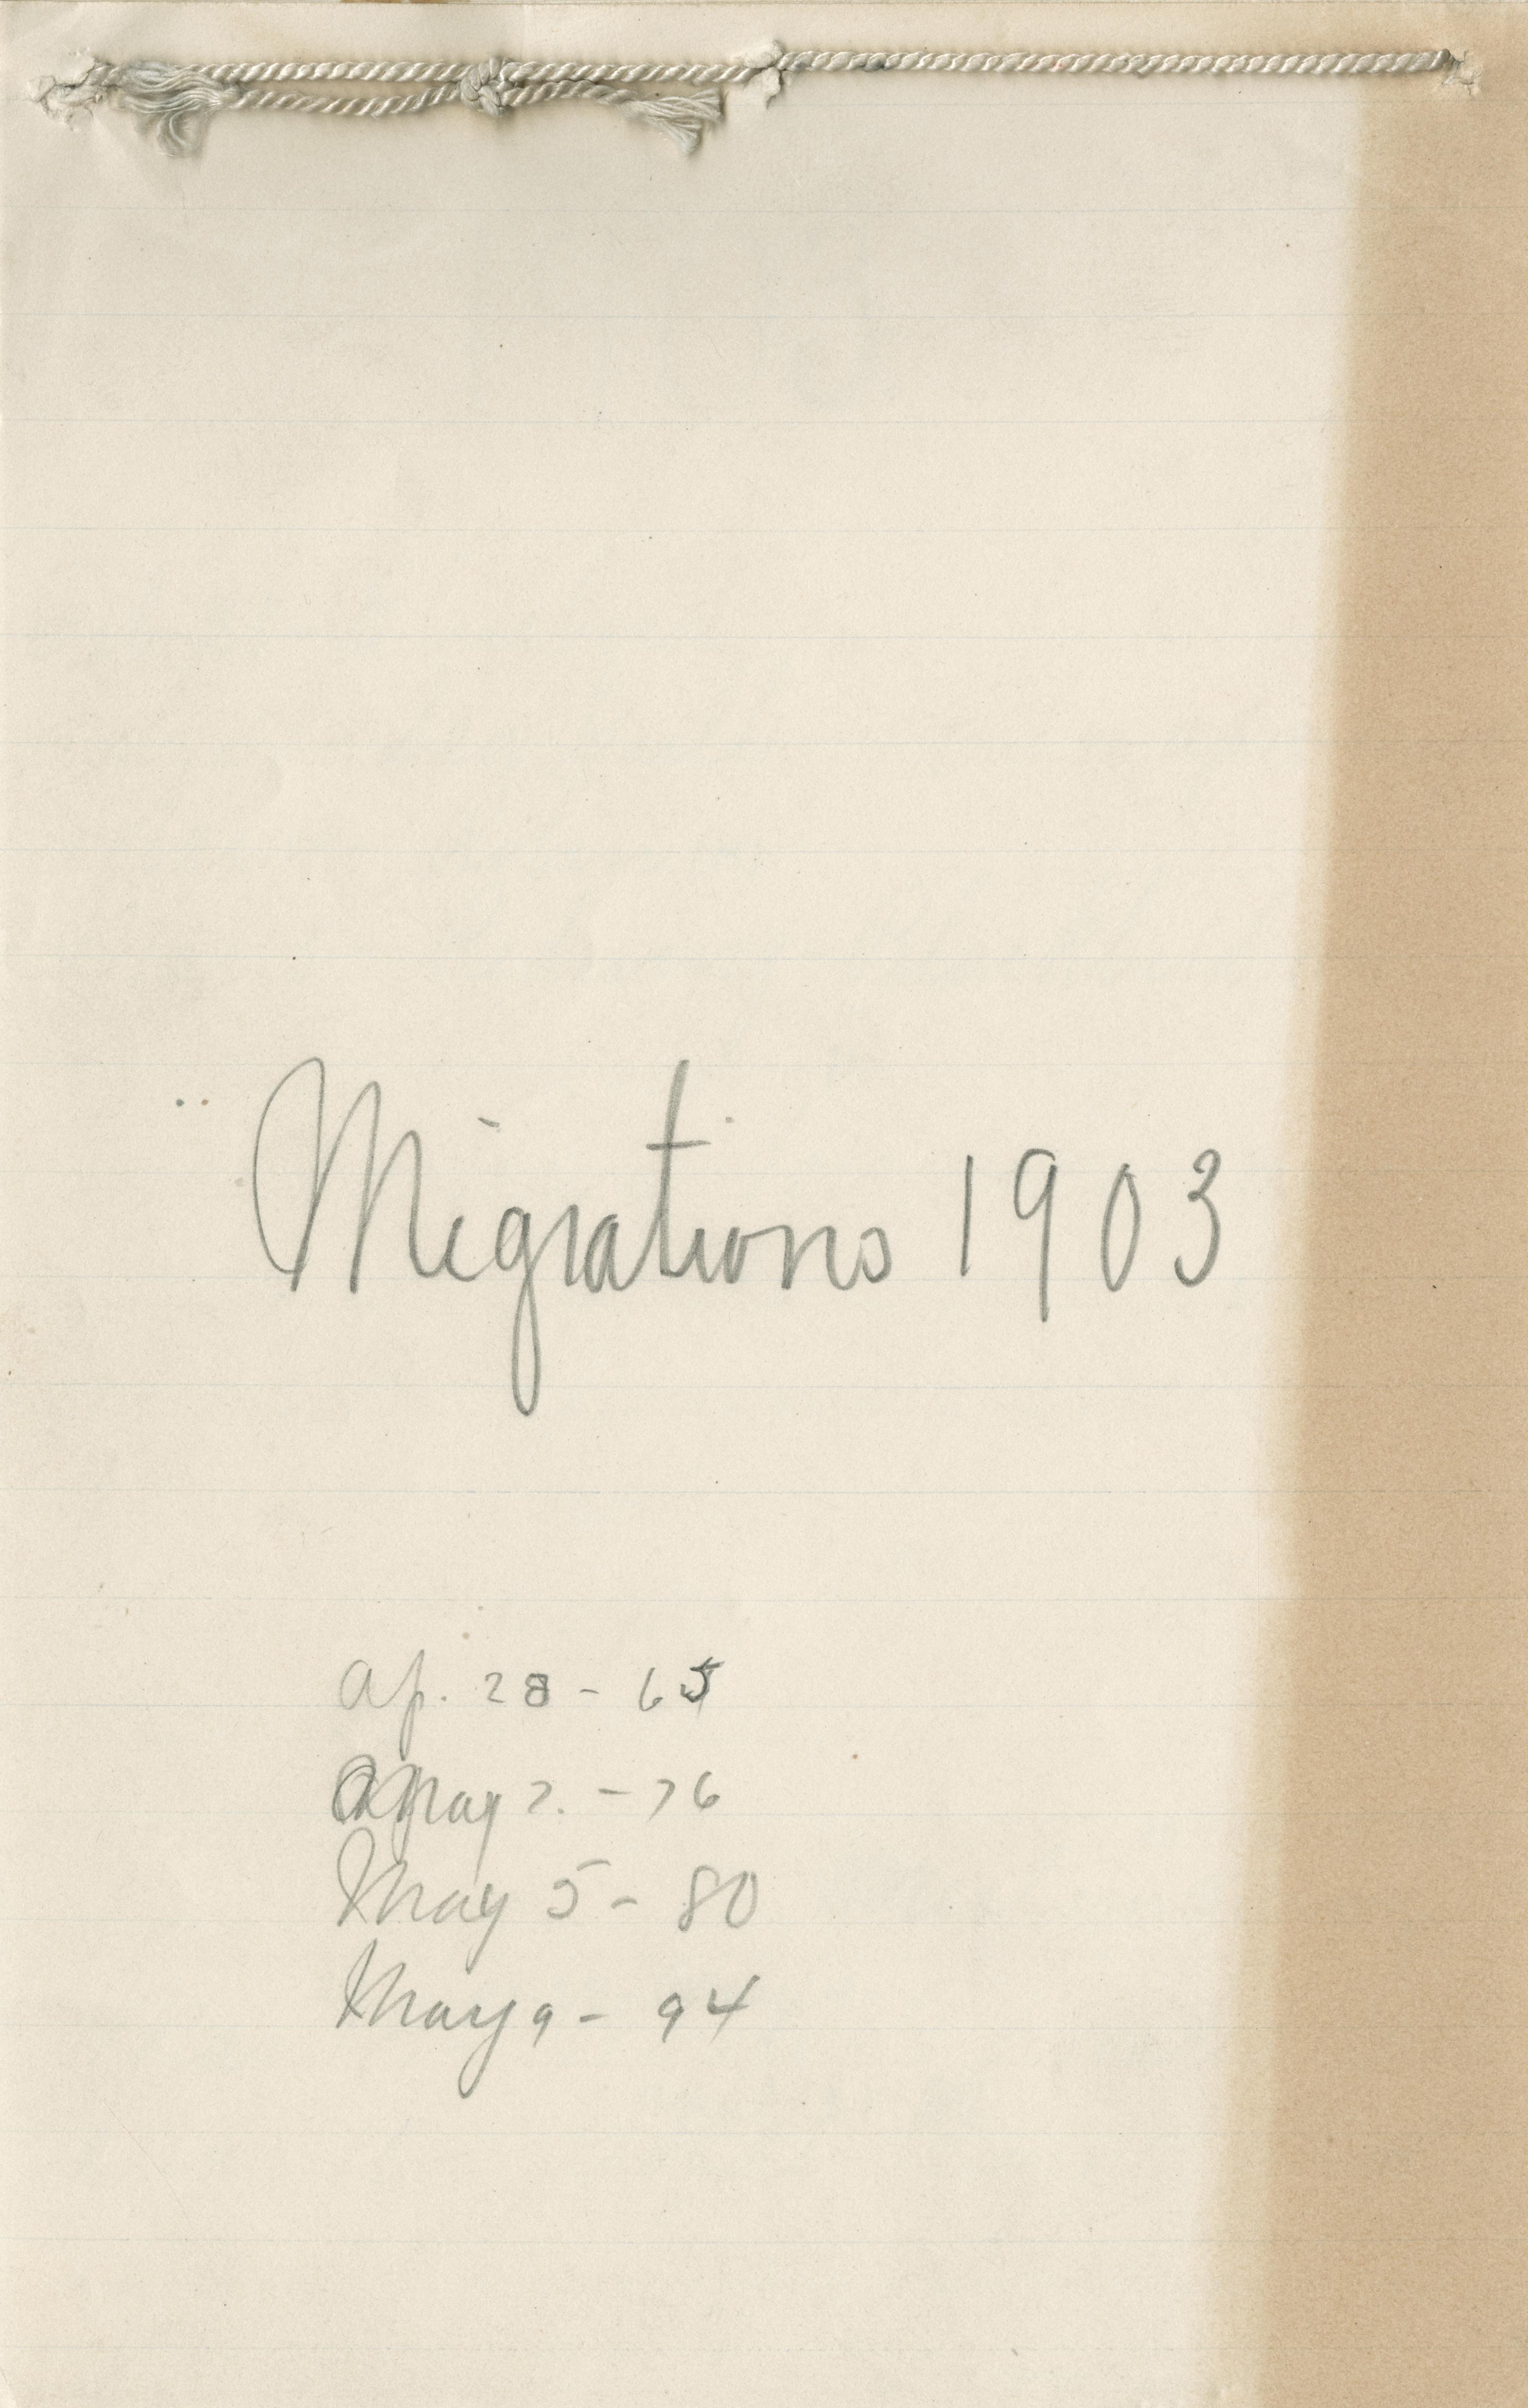 Migrations 1903
Ap. 28 - 65
May 2. - 76
May 5 - 80
May 9 - 94